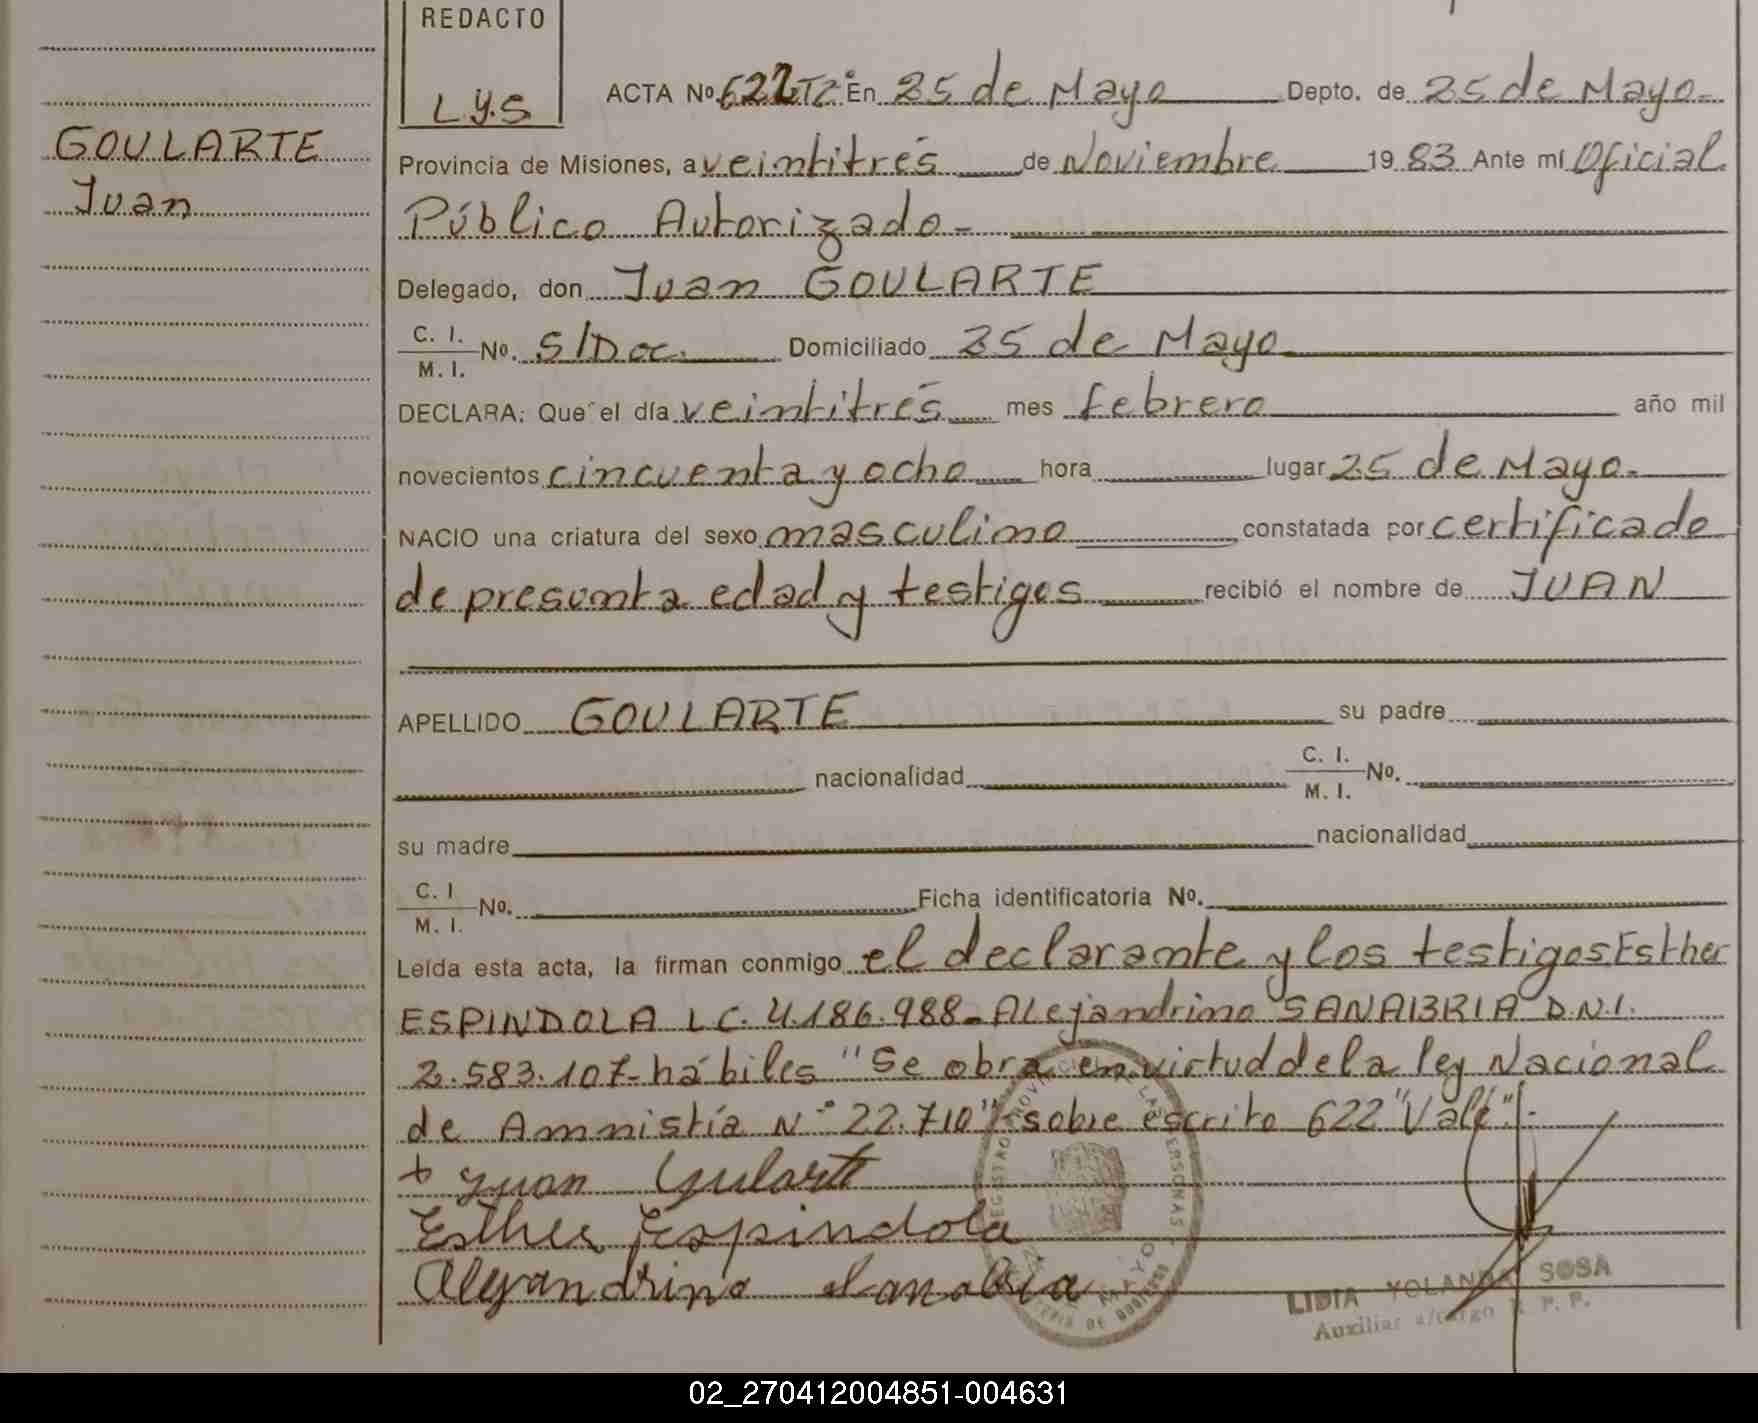 REDACTO
L.y.S
GOULARTE
Juan
ACTA Nº 622 Tº 2º En 25 de Mayo Depto. de 25 de Mayo-
Provincia de Misiones, a veintitrés de Noviembre 1983 Ante mí Oficial
Público Autorizado-
Delegado, don Juan GOULARTE
C. I. / M. I. No. S/Doc. Domiciliado 25 de Mayo
DECLARA: Que el día veintitrés mes febrero año mil
novecientos cincuenta y ocho hora lugar 25 de Mayo-
NACIO una criatura del sexo masculino constatada por certificado
de presunta edad y testigos recibió el nombre de JUAN
APELLIDO GOULARTE su padre
nacionalidad C. I. / M. I. No.
su madre nacionalidad
C. I / M. I. No. Ficha identificatoria No.
Leída esta acta, la firman conmigo el declarante y los testigos Esther
ESPINDOLA L.C. 4.186.988- Alejandrino SANABRIA D.N.I.
2.583.107- hábiles "Se obra en virtud de la ley Nacional
de Amnistía Nº 22.710"- sobre escrito 622 "Vale".-
+ Juan Gularte
Esther Espindola
Alejandrino Sanabria
LIDIA YOLANDA SOSA
Auxiliar a/cargo R. P. P.
02_270412004851-004631